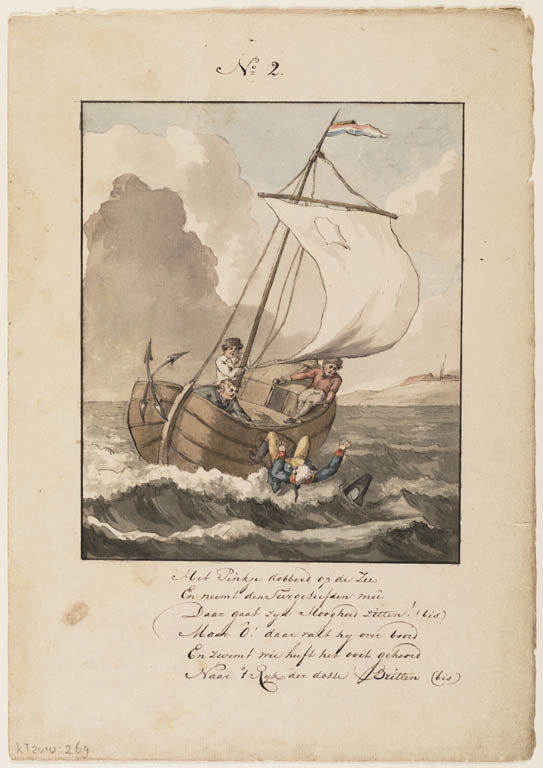 No. 2.
Het Pinkje dobberd op de Zee
En neemt den Teergeliefden meê
Daar gaat zyn Hoogheid zitten! (bis)
Maar ô! daar valt hy over boord
En zwemt wie heeft het ooit gehoord
Naar 't Ryk der dolle Britten (bis)
KT2010:269